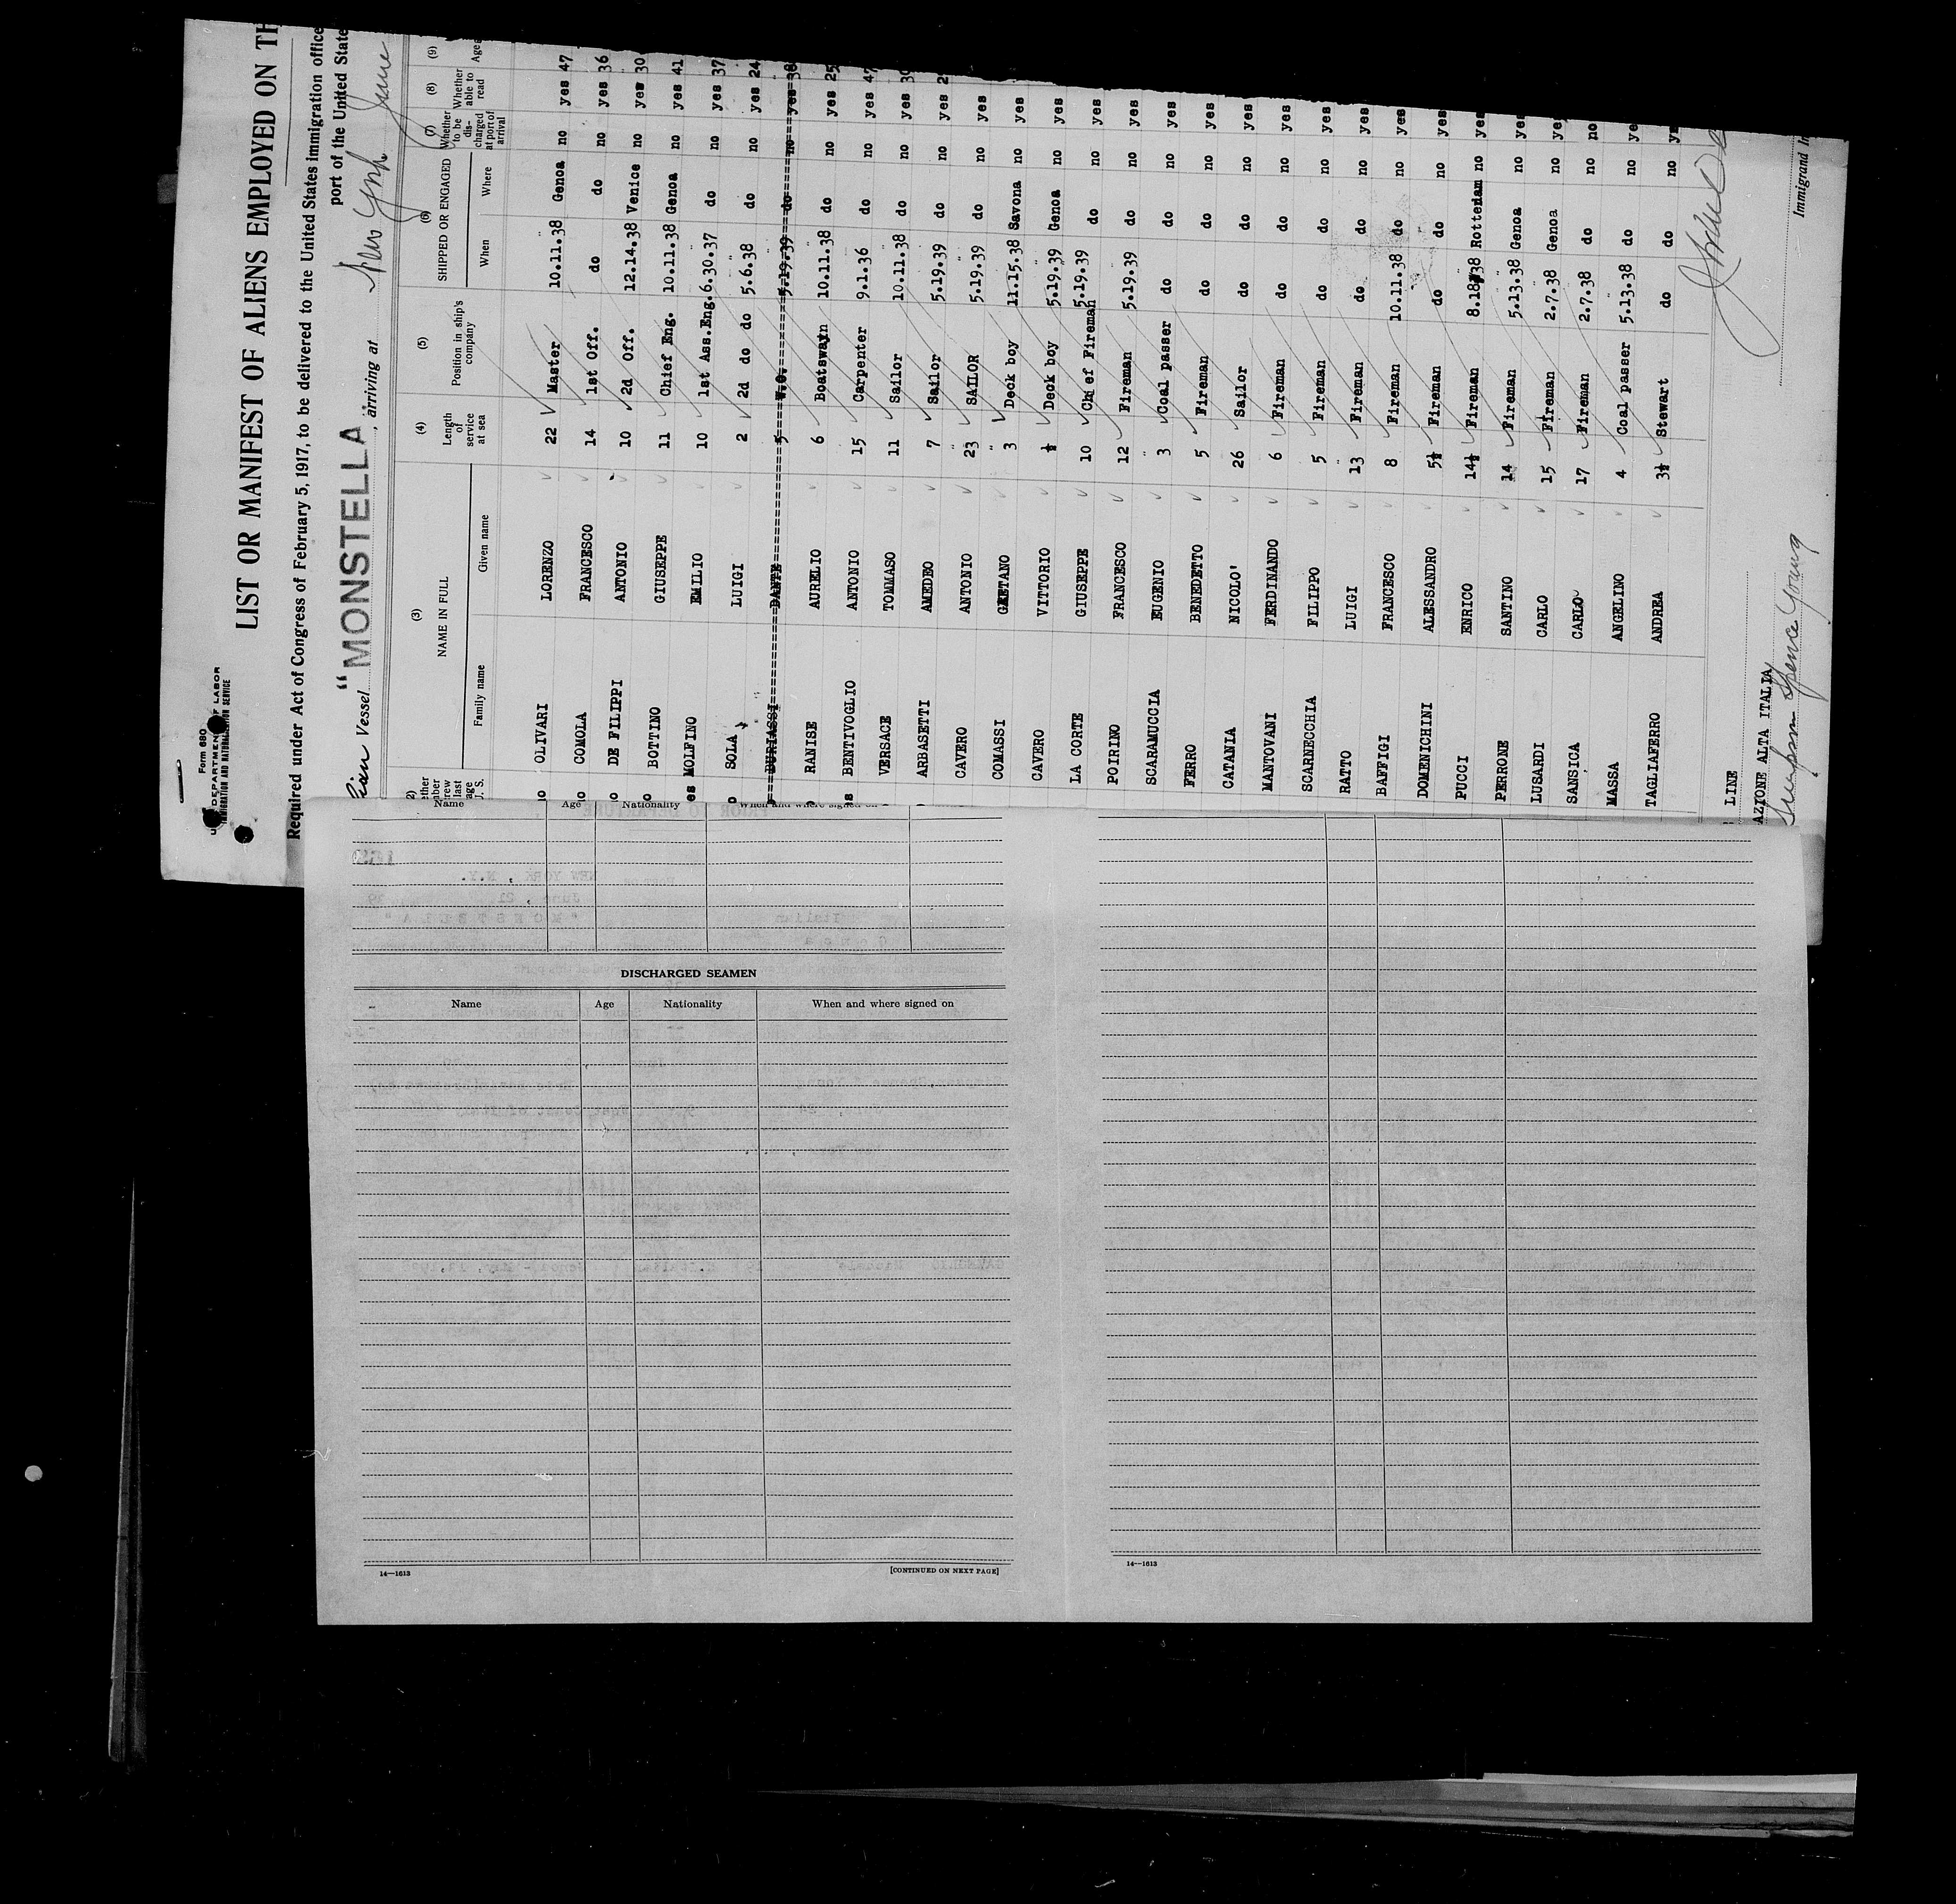 Form 680
U. S. DEPARTMENT OF LABOR
IMMIGRATION AND NATURALIZATION SERVICE
LIST OR MANIFEST OF ALIENS EMPLOYED ON TH
Required under Act of Congress of February 5, 1917, to be delivered to the United States immigration office
port of the United State
Vessel "MONSTELLA , arriving at New York June
(3) (4) (5) (6) (7) (8) (9)
NAME IN FULL Length of service at sea Position in ship's company SHIPPED OR ENGAGED Whether to be discharged at port of arrival Whether able to read Age
Family name Given name When Where
OLIVARI LORENZO 22 Master 10.11.38 Genoa no yes 47
COMOLA FRANCESCO 14 1st Off. do do no yes 36
DE FILIPPI ANTONIO 10 2d Off. 12.14.38 Venice no yes 30
BOTTINO GIUSEPPE 11 Chief Eng. 10.11.38 Genoa no yes 41
MOLFINO EMILIO 10 1st Ass.Eng. 6.30.37 do no yes 37
SOLA LUIGI 2 2d do do 5.6.38 do no yes 24
DANTE 5 W.O. 5.19.39 do no yes 38
RANISE AURELIO 6 Boatswain 10.11.38 do no yes 25
BENTIVOGLIO ANTONIO 15 Carpenter 9.1.36 do no yes 47
VERSACE TOMMASO 11 Sailor 10.11.38 do no yes 30
ARBASETTI AMEDEO 7 Sailor 5.19.39 do no yes
CAVERO ANTONIO 23 SAILOR 5.19.39 do no yes
COMASSI GAETANO 3 Deck boy 11.15.38 Savona no yes
CAVERO VITTORIO ½ Deck boy 5.19.39 Genoa no yes
LA CORTE GIUSEPPE 10 Chief Fireman 5.19.39 do no yes
POIRINO FRANCESCO 12 Fireman 5.19.39 do no yes
SCARAMUCCIA EUGENIO 3 Coal passer do do no yes
FERRO BENEDETTO 5 Fireman do do no yes
CATANIA NICOLO' 26 Sailor do do no yes
MANTOVANI FERDINANDO 6 Fireman do do no yes
SCARNECCHIA FILIPPO 5 Fireman do do no yes
RATTO LUIGI 13 Fireman do do no yes
BAFFIGI FRANCESCO 8 Fireman 10.11.38 do no yes
DOMENICHINI ALESSANDRO 5½ Fireman do do no yes
PUCCI ENRICO 14½ Fireman 8.18.38 Rotterdam no yes
PERRONE SANTINO 14 Fireman 5.13.38 Genoa no yes
LUSARDI CARLO 15 Fireman 2.7.38 Genoa no ye
SANSICA CARLO 17 Fireman 2.7.38 do no no
MASSA ANGELINO 4 Coal passer 5.13.38 do no ye
TAGLIAFERRO ANDREA 3½ Stewart do do no
LINE
AZIONE ALTA ITALIA
Simpson Spence Young
Immigrant In
Name Age Nationality When and where signed on
DISCHARGED SEAMEN
Name Age Nationality When and where signed on
14—1613
[CONTINUED ON NEXT PAGE]
14—1613